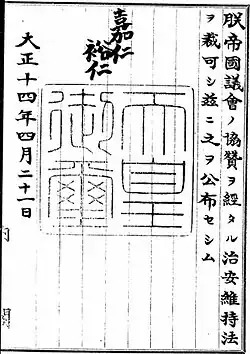 朕帝國議會ノ協贊ヲ經タル治安維持法
ヲ裁可シ茲ニ之ヲ公布セシム
嘉仁
裕仁
天皇
御璽
大正十四年四月二十一日